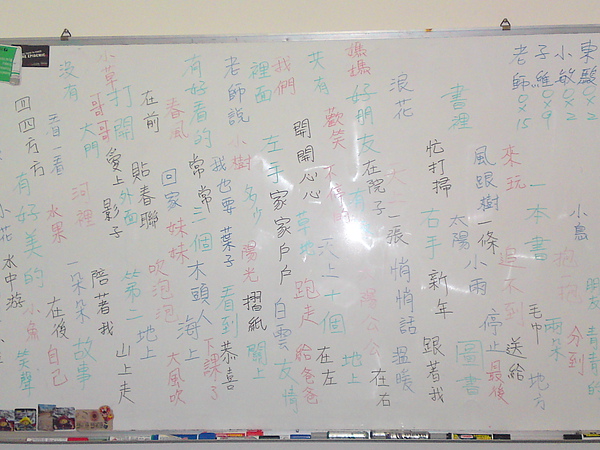 東駿 0×2
小敏 0×2
子維 0×9
老師 0×15
青青的
朋友
分到
小鳥
雨朵
地方
抱一抱
毛巾
一本書
送給
最後
來玩
追不到
停止
風跟樹
一條
小雨
太陽
書裡
圖書
忙打掃
右手
新年
跟著我
浪花
天上
一張
悄悄話
溫暖
在院子
太陽公公
在右
媽媽
好朋友
地上
夾有
歡笑
不停的
天上
十個
在左
開開心心
草地
跑走
給爸爸
我們
家家戶戶
白雲
友情
裡面
左手
摺紙
關上
老師說
小樹
多少
陽光
我也要
葉子
看到
恭喜
有好看的
常常
三個
木頭人
海上
下課了
春風
回家
妹妹
吹泡泡
大風吹
在前
貼春聯
地上
打開
外面
第二
山上走
小草
哥哥
愛上
影子
陪著我
大門
河裡
一朵朵
故事
沒有
看一看
水果
在後
自己
四四方方
有好美的
小魚
笑聲
水中游
小花